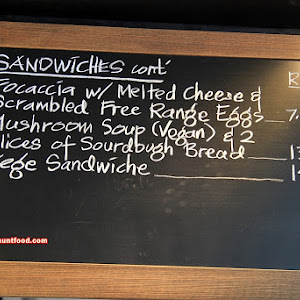 SANDWICHES cont'
R
Focaccia w/ Melted Cheese &
Scrambled Free Range Eggs 7.
Mushroom Soup (Vegan) & 2
Slices of Sourdough Bread 1
Vege Sandwiche 1
untfood.com